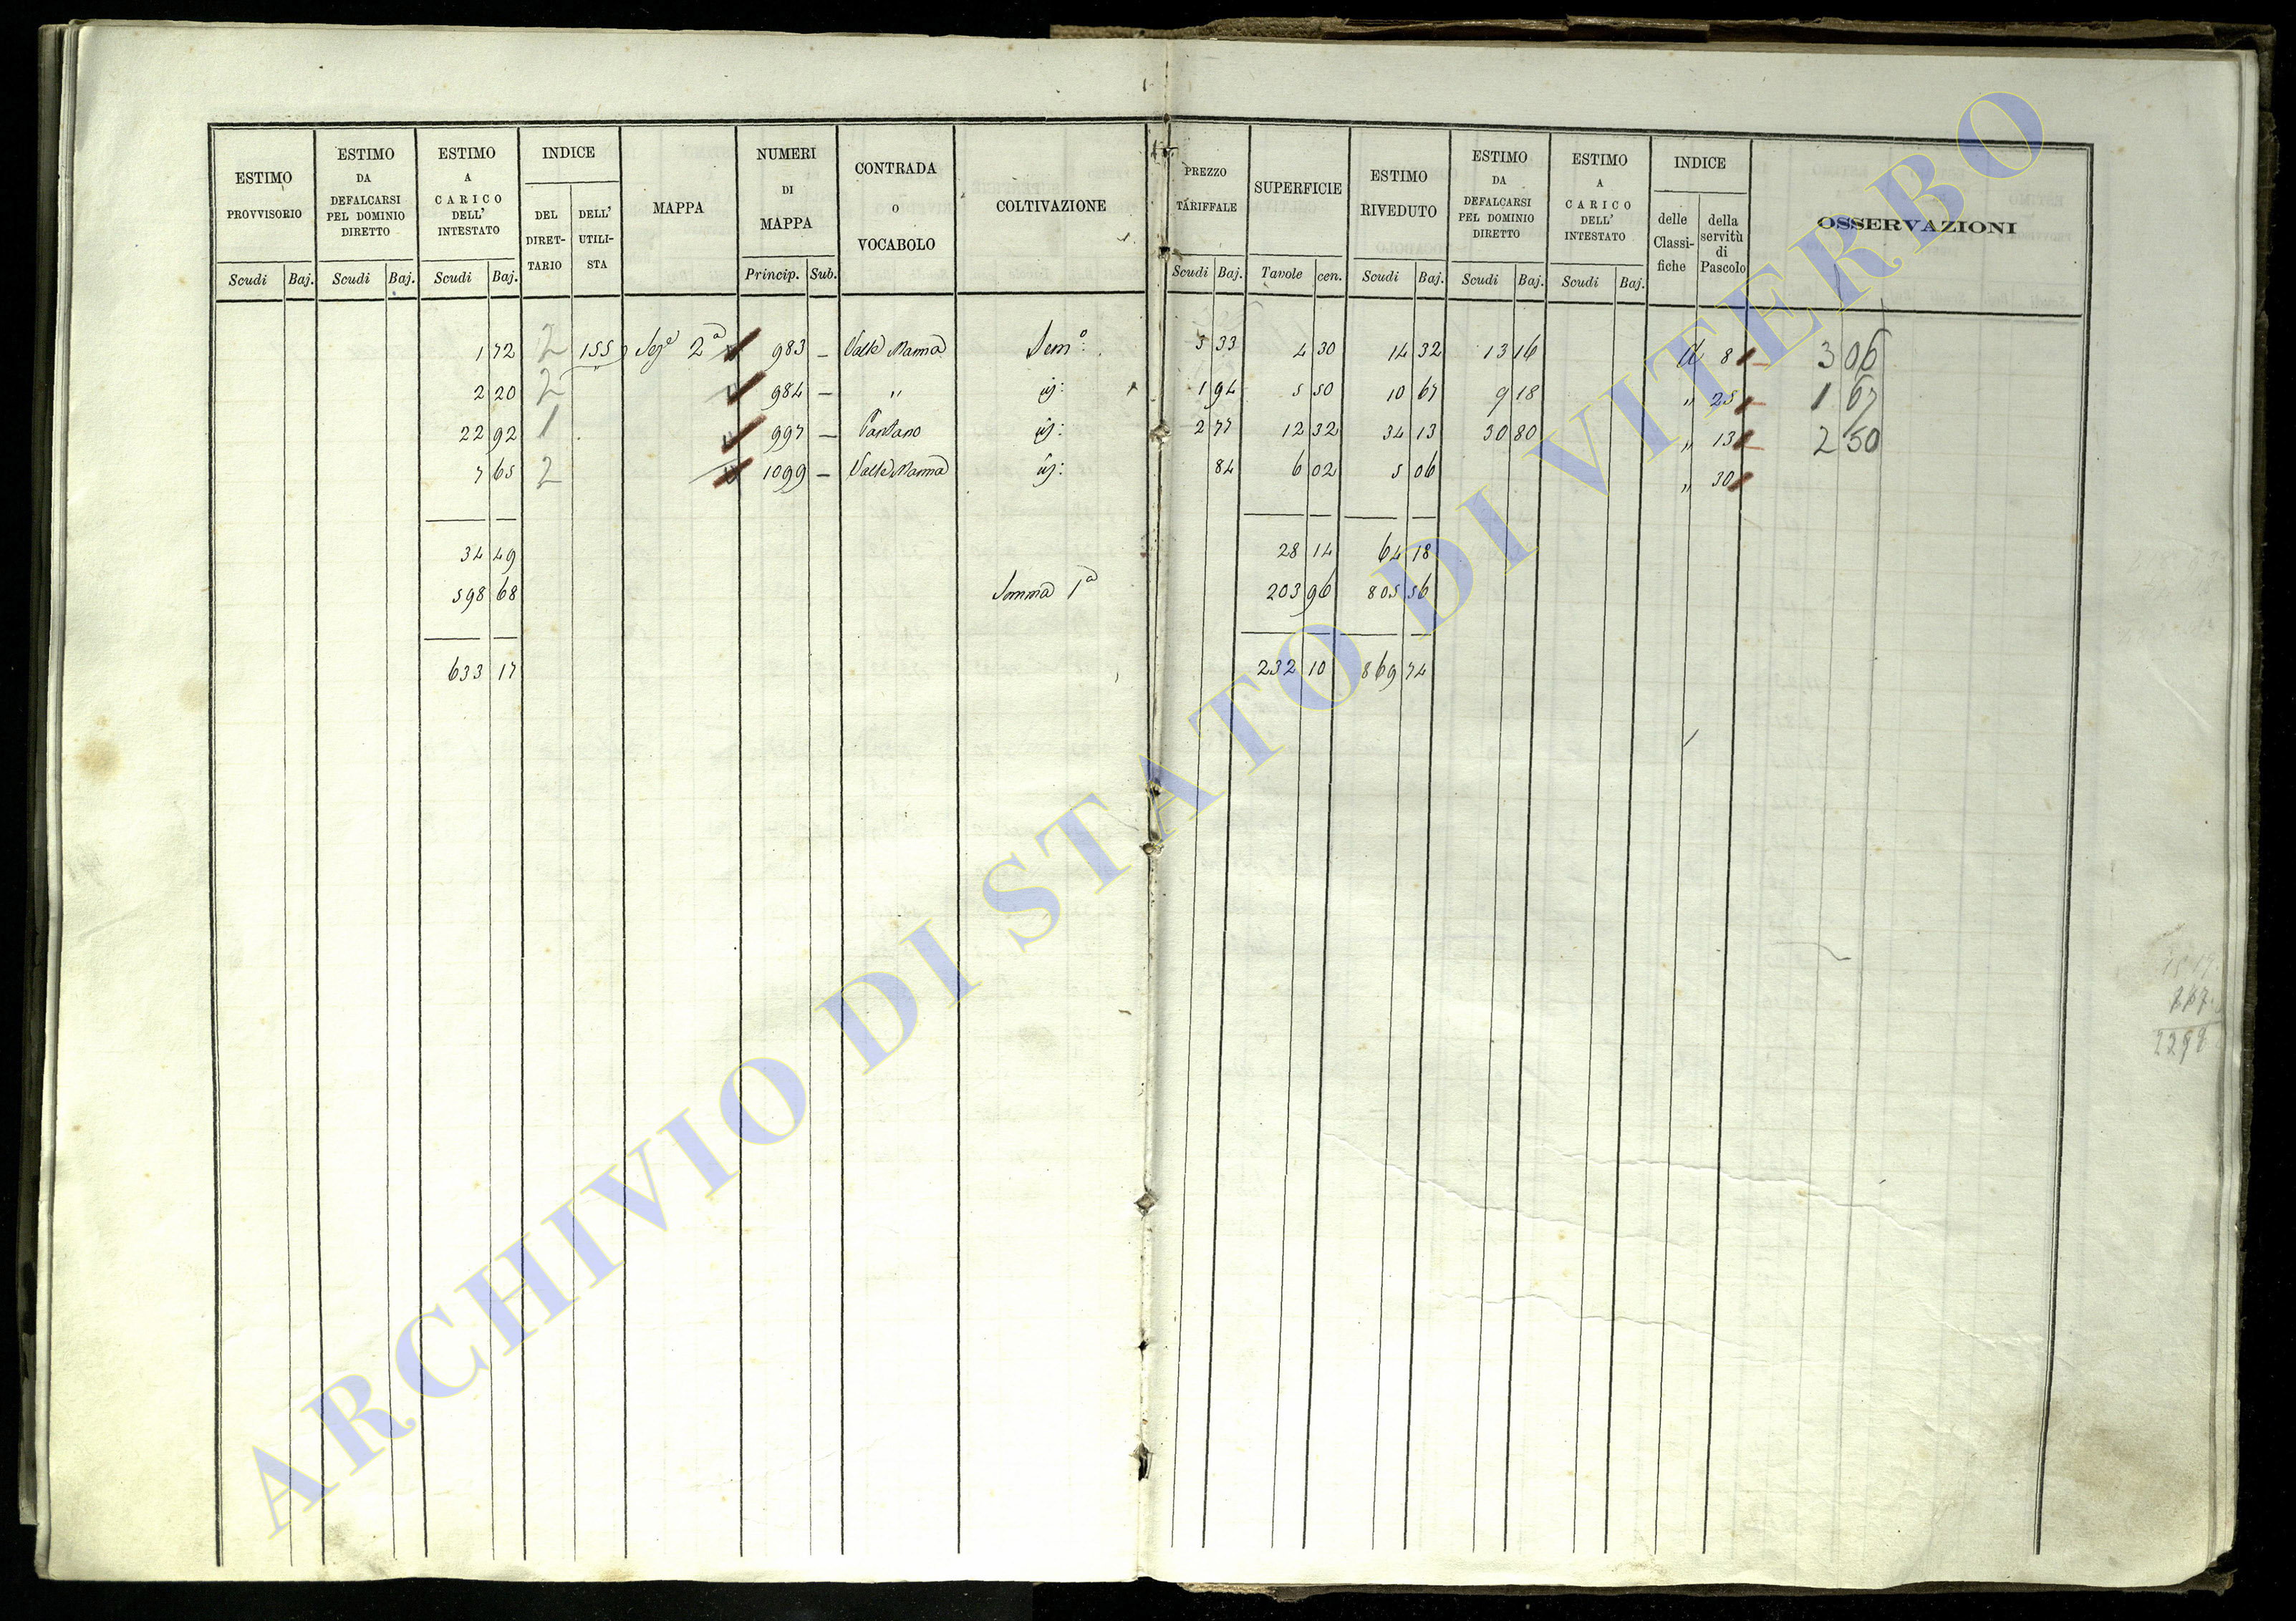 ESTIMO PROVVISORIO Scudi Baj.
ESTIMO DA DEFALCARSI PEL DOMINIO DIRETTO Scudi Baj.
ESTIMO A CARICO DELL' INTESTATO Scudi Baj.
INDICE DEL DIRET- TARIO DELL' UTILI- STA
MAPPA
NUMERI DI MAPPA Princip. Sub.
CONTRADA o VOCABOLO
COLTIVAZIONE
PREZZO TARIFFALE Scudi Baj.
SUPERFICIE Tavole cen.
ESTIMO RIVEDUTO Scudi Baj.
ESTIMO DA DEFALCARSI PEL DOMINIO DIRETTO Scudi Baj.
ESTIMO A CARICO DELL' INTESTATO Scudi Baj.
INDICE delle Classi- fiche della servitù di Pascolo
OSSERVAZIONI
1 72 2 155 Sez.a 2a 983 — Valle Manna Sem.o 3 33 4 30 14 32 13 16 8 3 06
2 20 2 984 — " id: 1 94 5 50 10 67 9 18 " 25 1 67
22 92 1 997 — Pantano id: 2 77 12 32 34 13 30 80 " 13 2 50
7 65 2 1099 — Valle Manna id: 84 6 02 5 06 " 30
34 49 28 14 64 18
598 68 Somma 1a 203 96 805 56
633 17 232 10 869 74
2298
ARCHIVIO DI STATO DI VITERBO